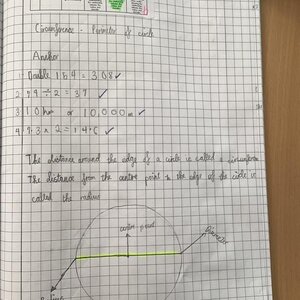 Circumference - Perimeter of circle
Anchor
1 Double 154 = 308 ✓
2 ÷ 2 = 37 ✓
3 10km or 10,000m ✓
4 7.3 x 2 = 14.6 ✓
The distance around the edge of a circle is called a circumference
The distance from the centre point to the edge of the circle is
called the radius
centre point
Diameter